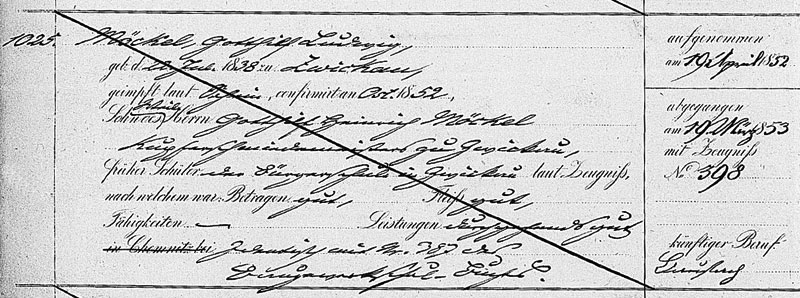 1025. Möckel, Gotthilf Ludwig,
geb. d. Jul. 1838 zu Zwickau,
geimpft laut Schein, confirmirt an Ost. 1852,
Sohn des Herrn Gotthilf Heinrich Möckel
Kupferschmiedemeisters zu Zwickau,
früher Schüler der Bürgerschule in Zwickau laut Zeugniß,
nach welchem war: Betragen gut, Fleiß gut,
Fähigkeiten — Leistungen durchgehends gut
in Chemnitz bei Identisch mit Nr. 787 des
aufgenommen
am 19 April 1852
abgegangen
am 19 März 1853
mit Zeugniß
No 398
künftiger Beruf